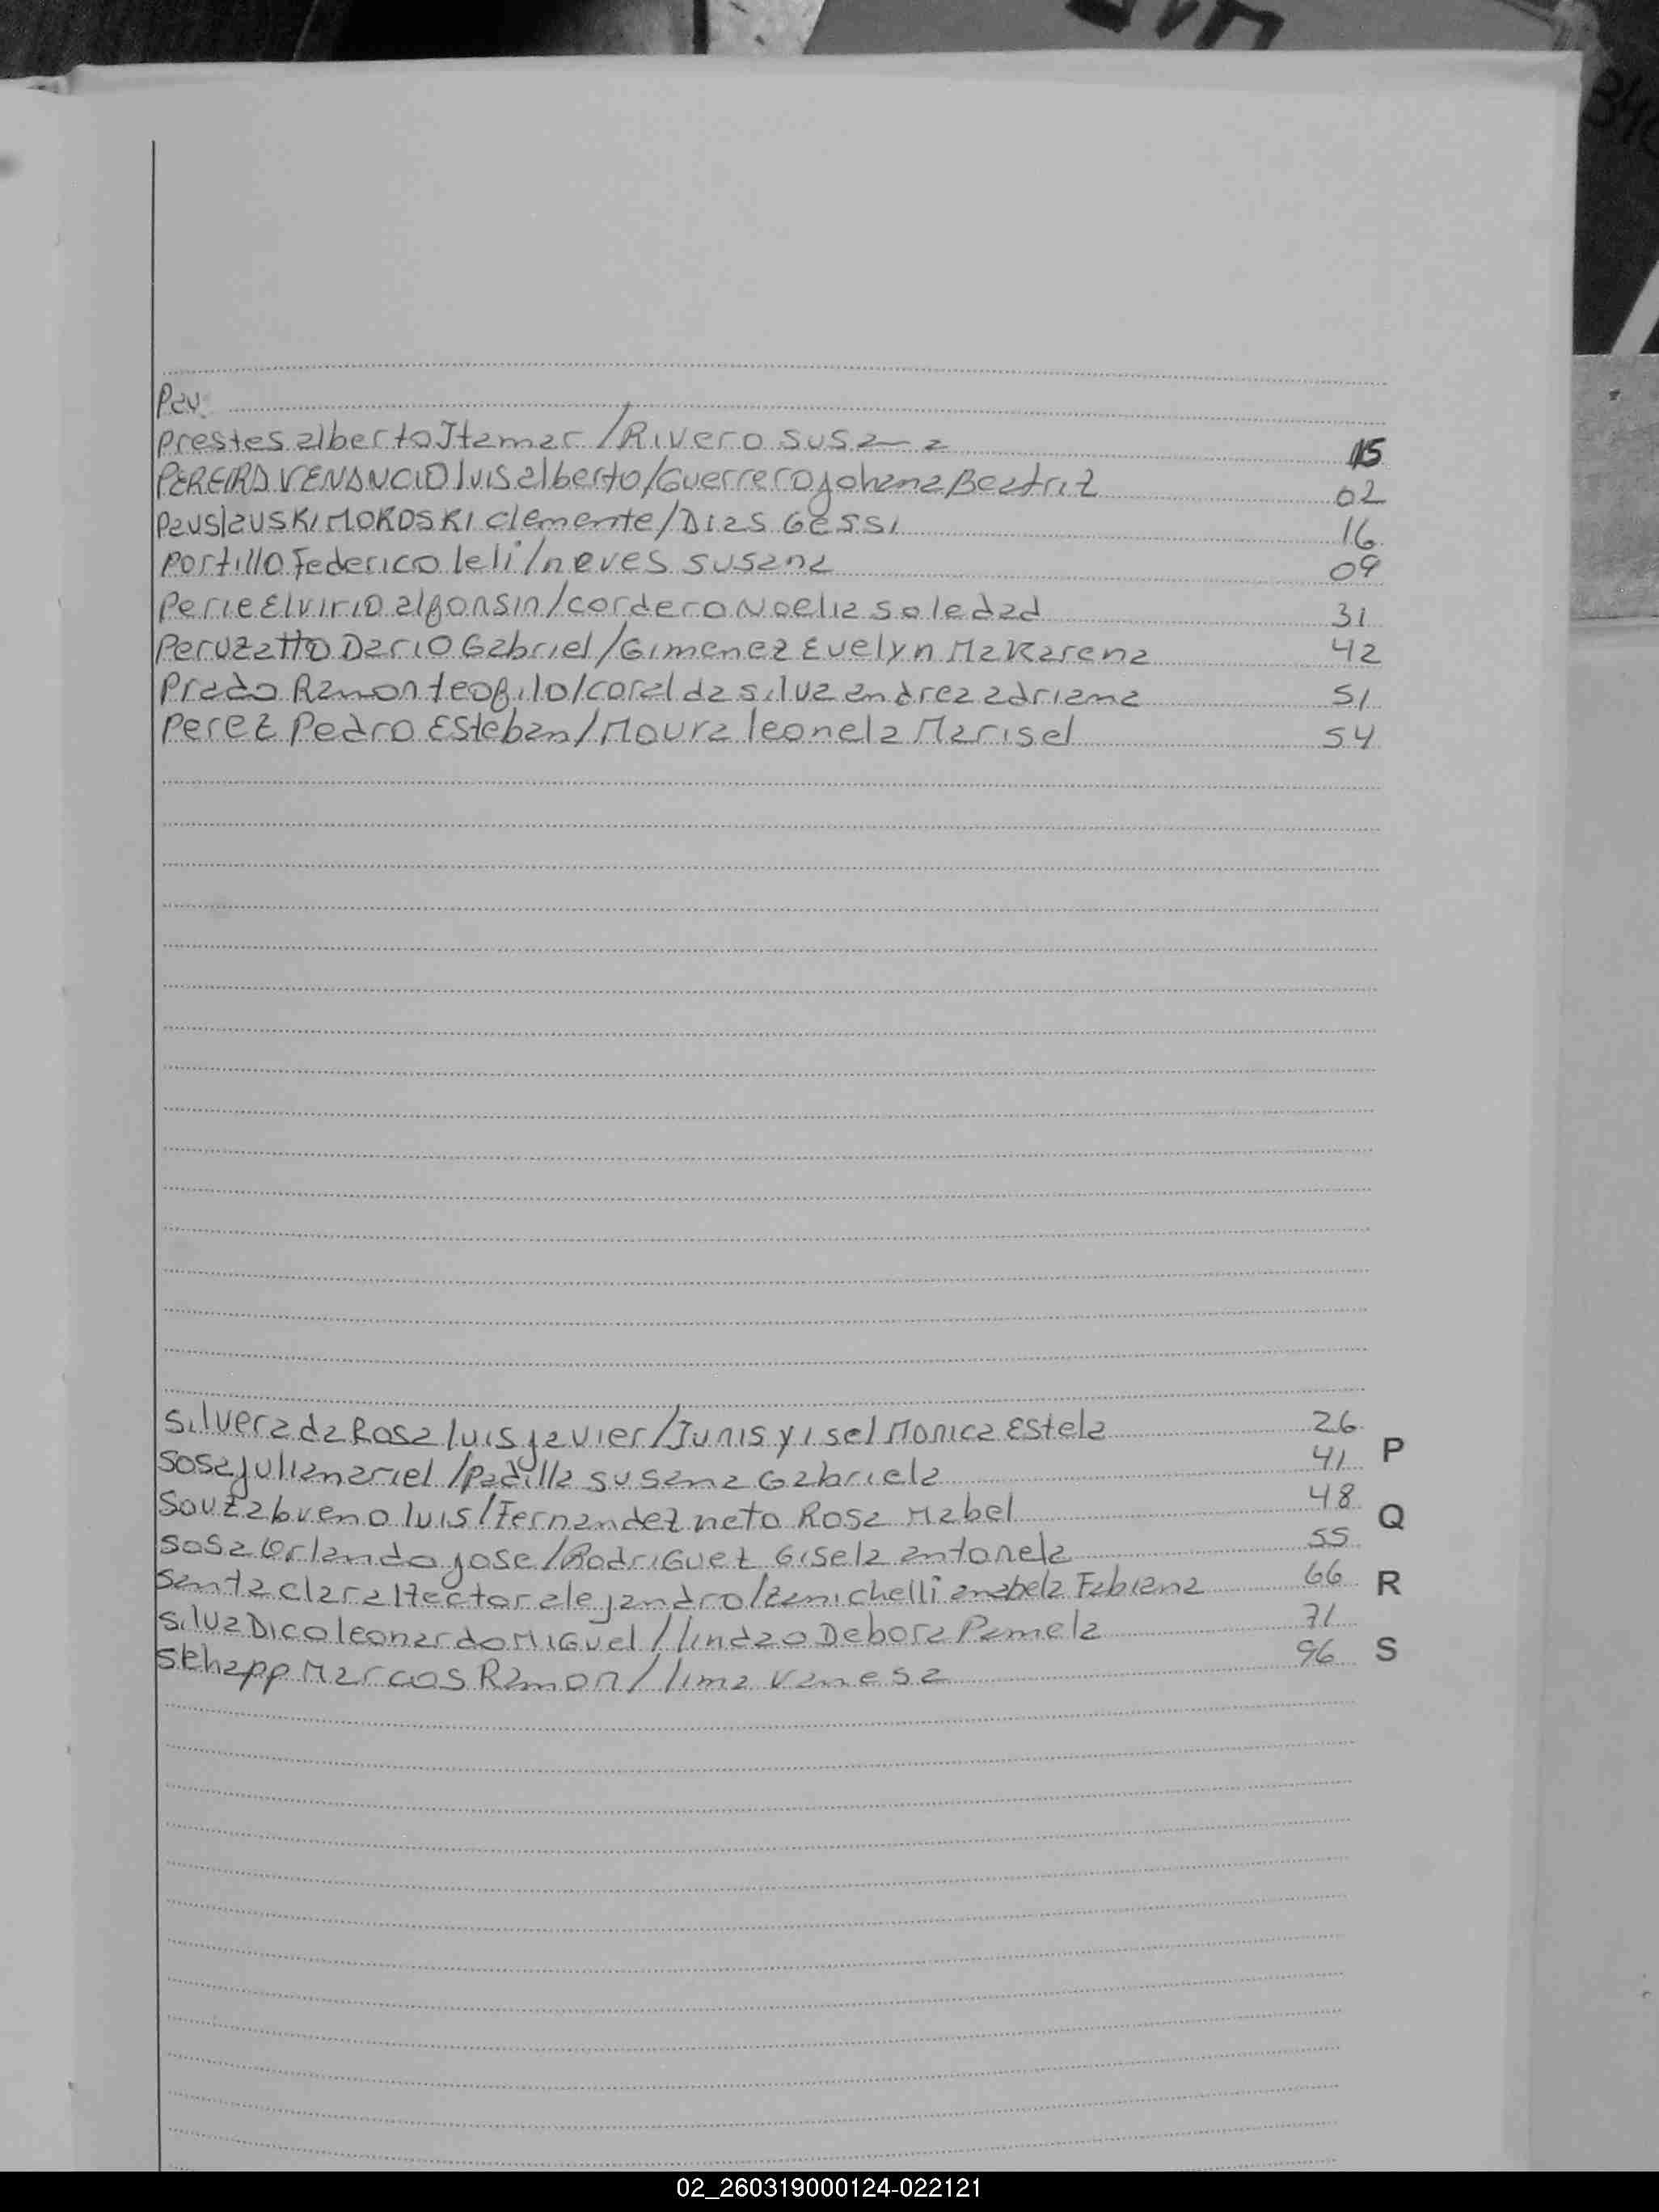 Pau.
Prestes alberto Itamar / Rivero Susana 15
PEREIRA VENANCIO luis alberto / Guerrero yohana Beatriz 02
Pauslauski MOROSKI clemente / Dias Gessi 16
Portillo Federico leli / neves susana 09
Perie Elvirio alfonsin / cordero Noelia soledad 31
Peruzatto Dario Gabriel / Gimenez Evelyn Makarena 42
Prado Ramon teofilo / coral da silva andrea adriana 51
Perez Pedro Esteban / Moura leonela Marisel 54
Silvera da Rosa luis javier / Junis yisel Monica Estela 26
Sosa julian ariel / Padilla susana Gabriela 41
P
Souza bueno luis / Fernandez neto Rosa Mabel 48
Q
Sosa Orlando jose / Rodriguez Gisela antonela 55
Santa clara Hector alejandro / Zanichelli anabela Fabiana 66
R
Silva Dico leonardo Miguel / lindao Debora Pamela 71
Skhapp Marcos Ramon / lima Vanesa 96
S
02_260319000124-022121